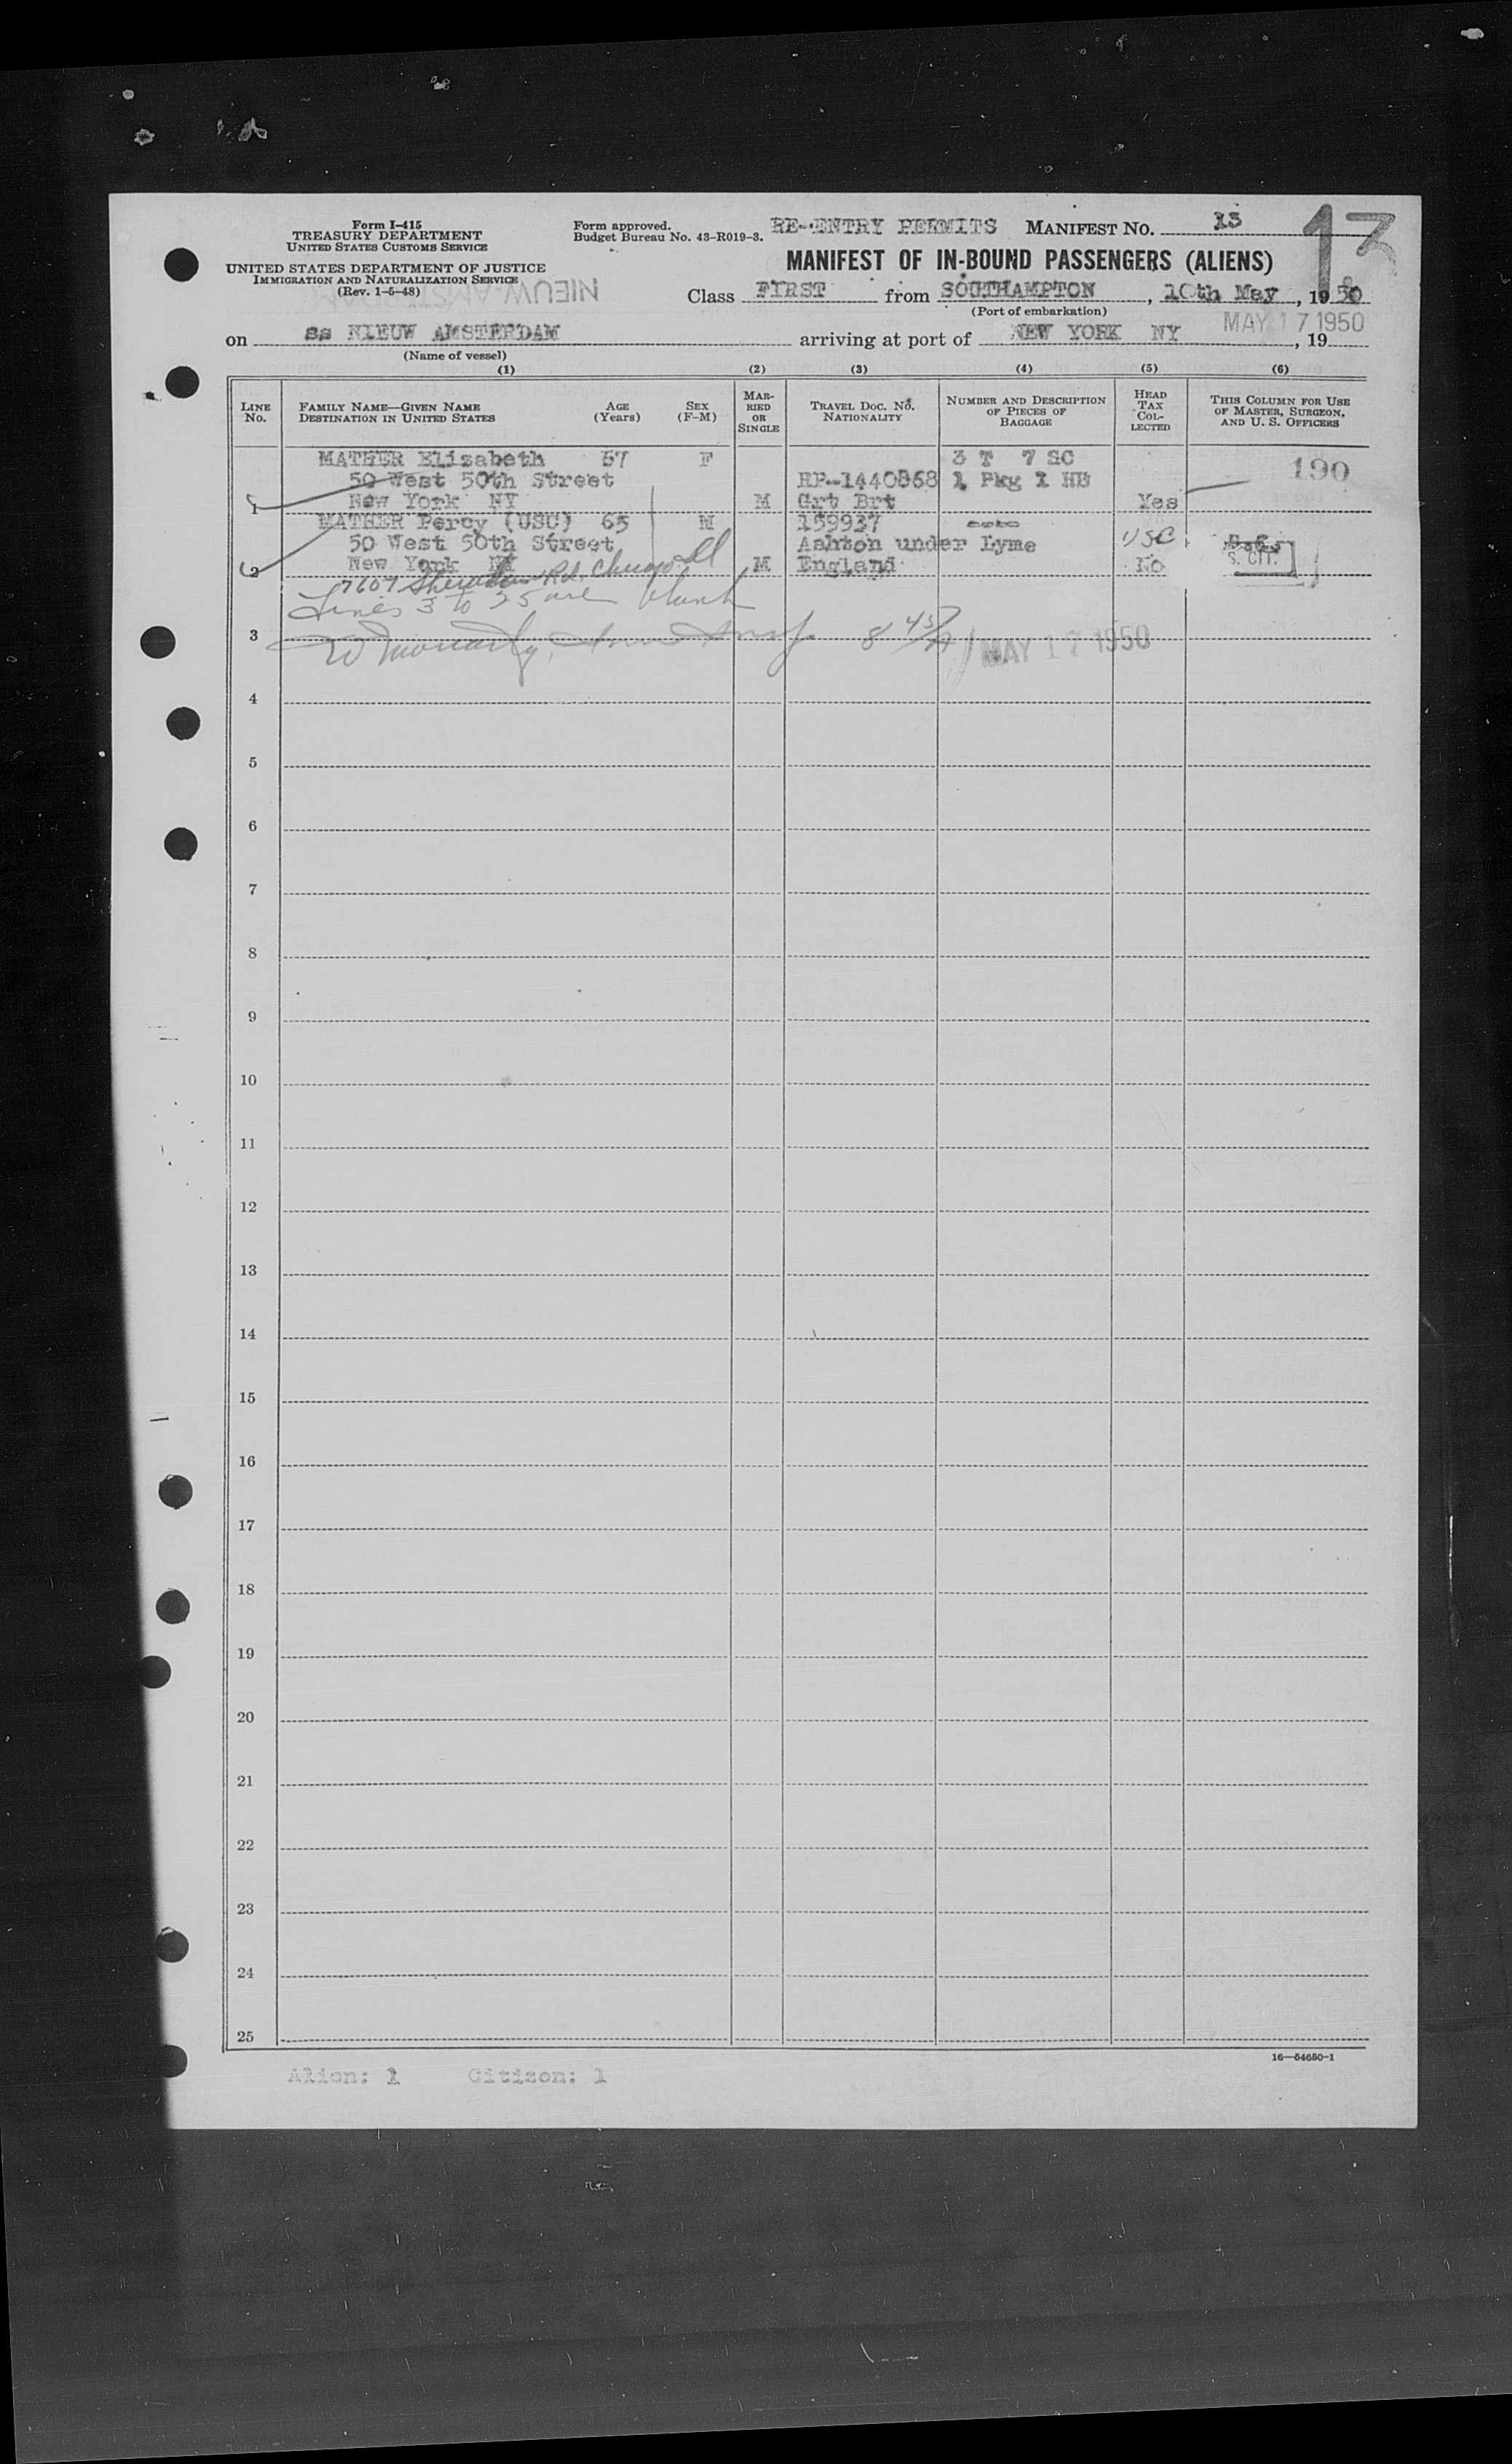 Form I-415
TREASURY DEPARTMENT
UNITED STATES CUSTOMS SERVICE
UNITED STATES DEPARTMENT OF JUSTICE
IMMIGRATION AND NATURALIZATION SERVICE
(Rev. 1-5-48)
Form approved.
Budget Bureau No. 43-R019-3.
RE-ENTRY PERMITS MANIFEST NO. 13
13
MANIFEST OF IN-BOUND PASSENGERS (ALIENS)
NIEUW-AMST
Class FIRST from SOUTHAMPTON, 10th May, 1950
(Port of embarkation)
MAY 17 1950
on ss NIEUW AMSTERDAM arriving at port of NEW YORK NY, 19
(Name of vessel)
(1) (2) (3) (4) (5) (6)
LINE NO.
FAMILY NAME—GIVEN NAME
DESTINATION IN UNITED STATES
AGE (Years)
SEX (F-M)
MARRIED OR SINGLE
TRAVEL DOC. NO.
NATIONALITY
NUMBER AND DESCRIPTION OF PIECES OF BAGGAGE
HEAD TAX COLLECTED
THIS COLUMN FOR USE OF MASTER, SURGEON, AND U. S. OFFICERS
MATHER Elizabeth 57 F 3 T 7 SC
50 West 50th Street RP-1440868 1 Pkg 1 HB 190
1 New York NY M Grt Brt Yes
MATHER Percy (USC) 65 M 159937
50 West 50th Street Ashton under Lyme USC
2 New York NY M England No S. CIT.
7607 Sheridan Rd. Chicago Ill
Lines 3 to 25 are blank
3 8 45/A MAY 17 1950
4
5
6
7
8
9
10
11
12
13
14
15
16
17
18
19
20
21
22
23
24
25
16—54650-1
Alien: 1 Citizen: 1